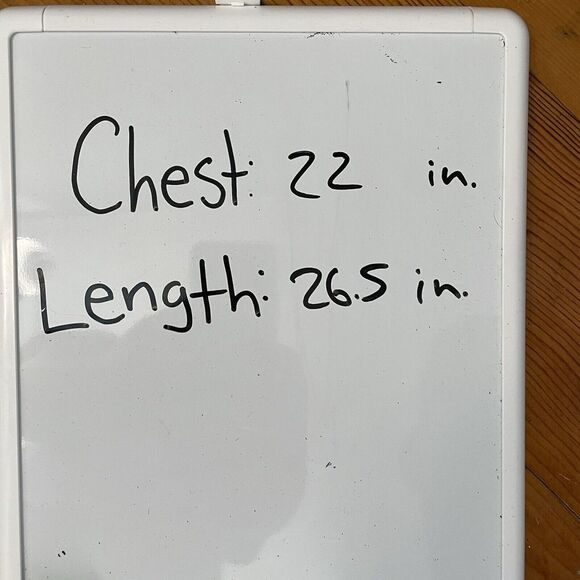 Chest: 22 in.
Length: 26.5 in.